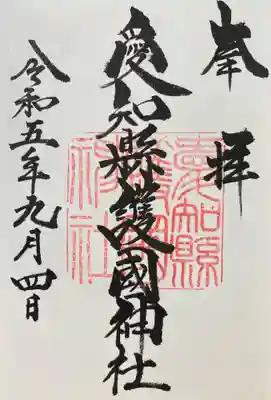 奉拝
愛知縣護國神社
愛知縣護國神社
令和五年九月四日